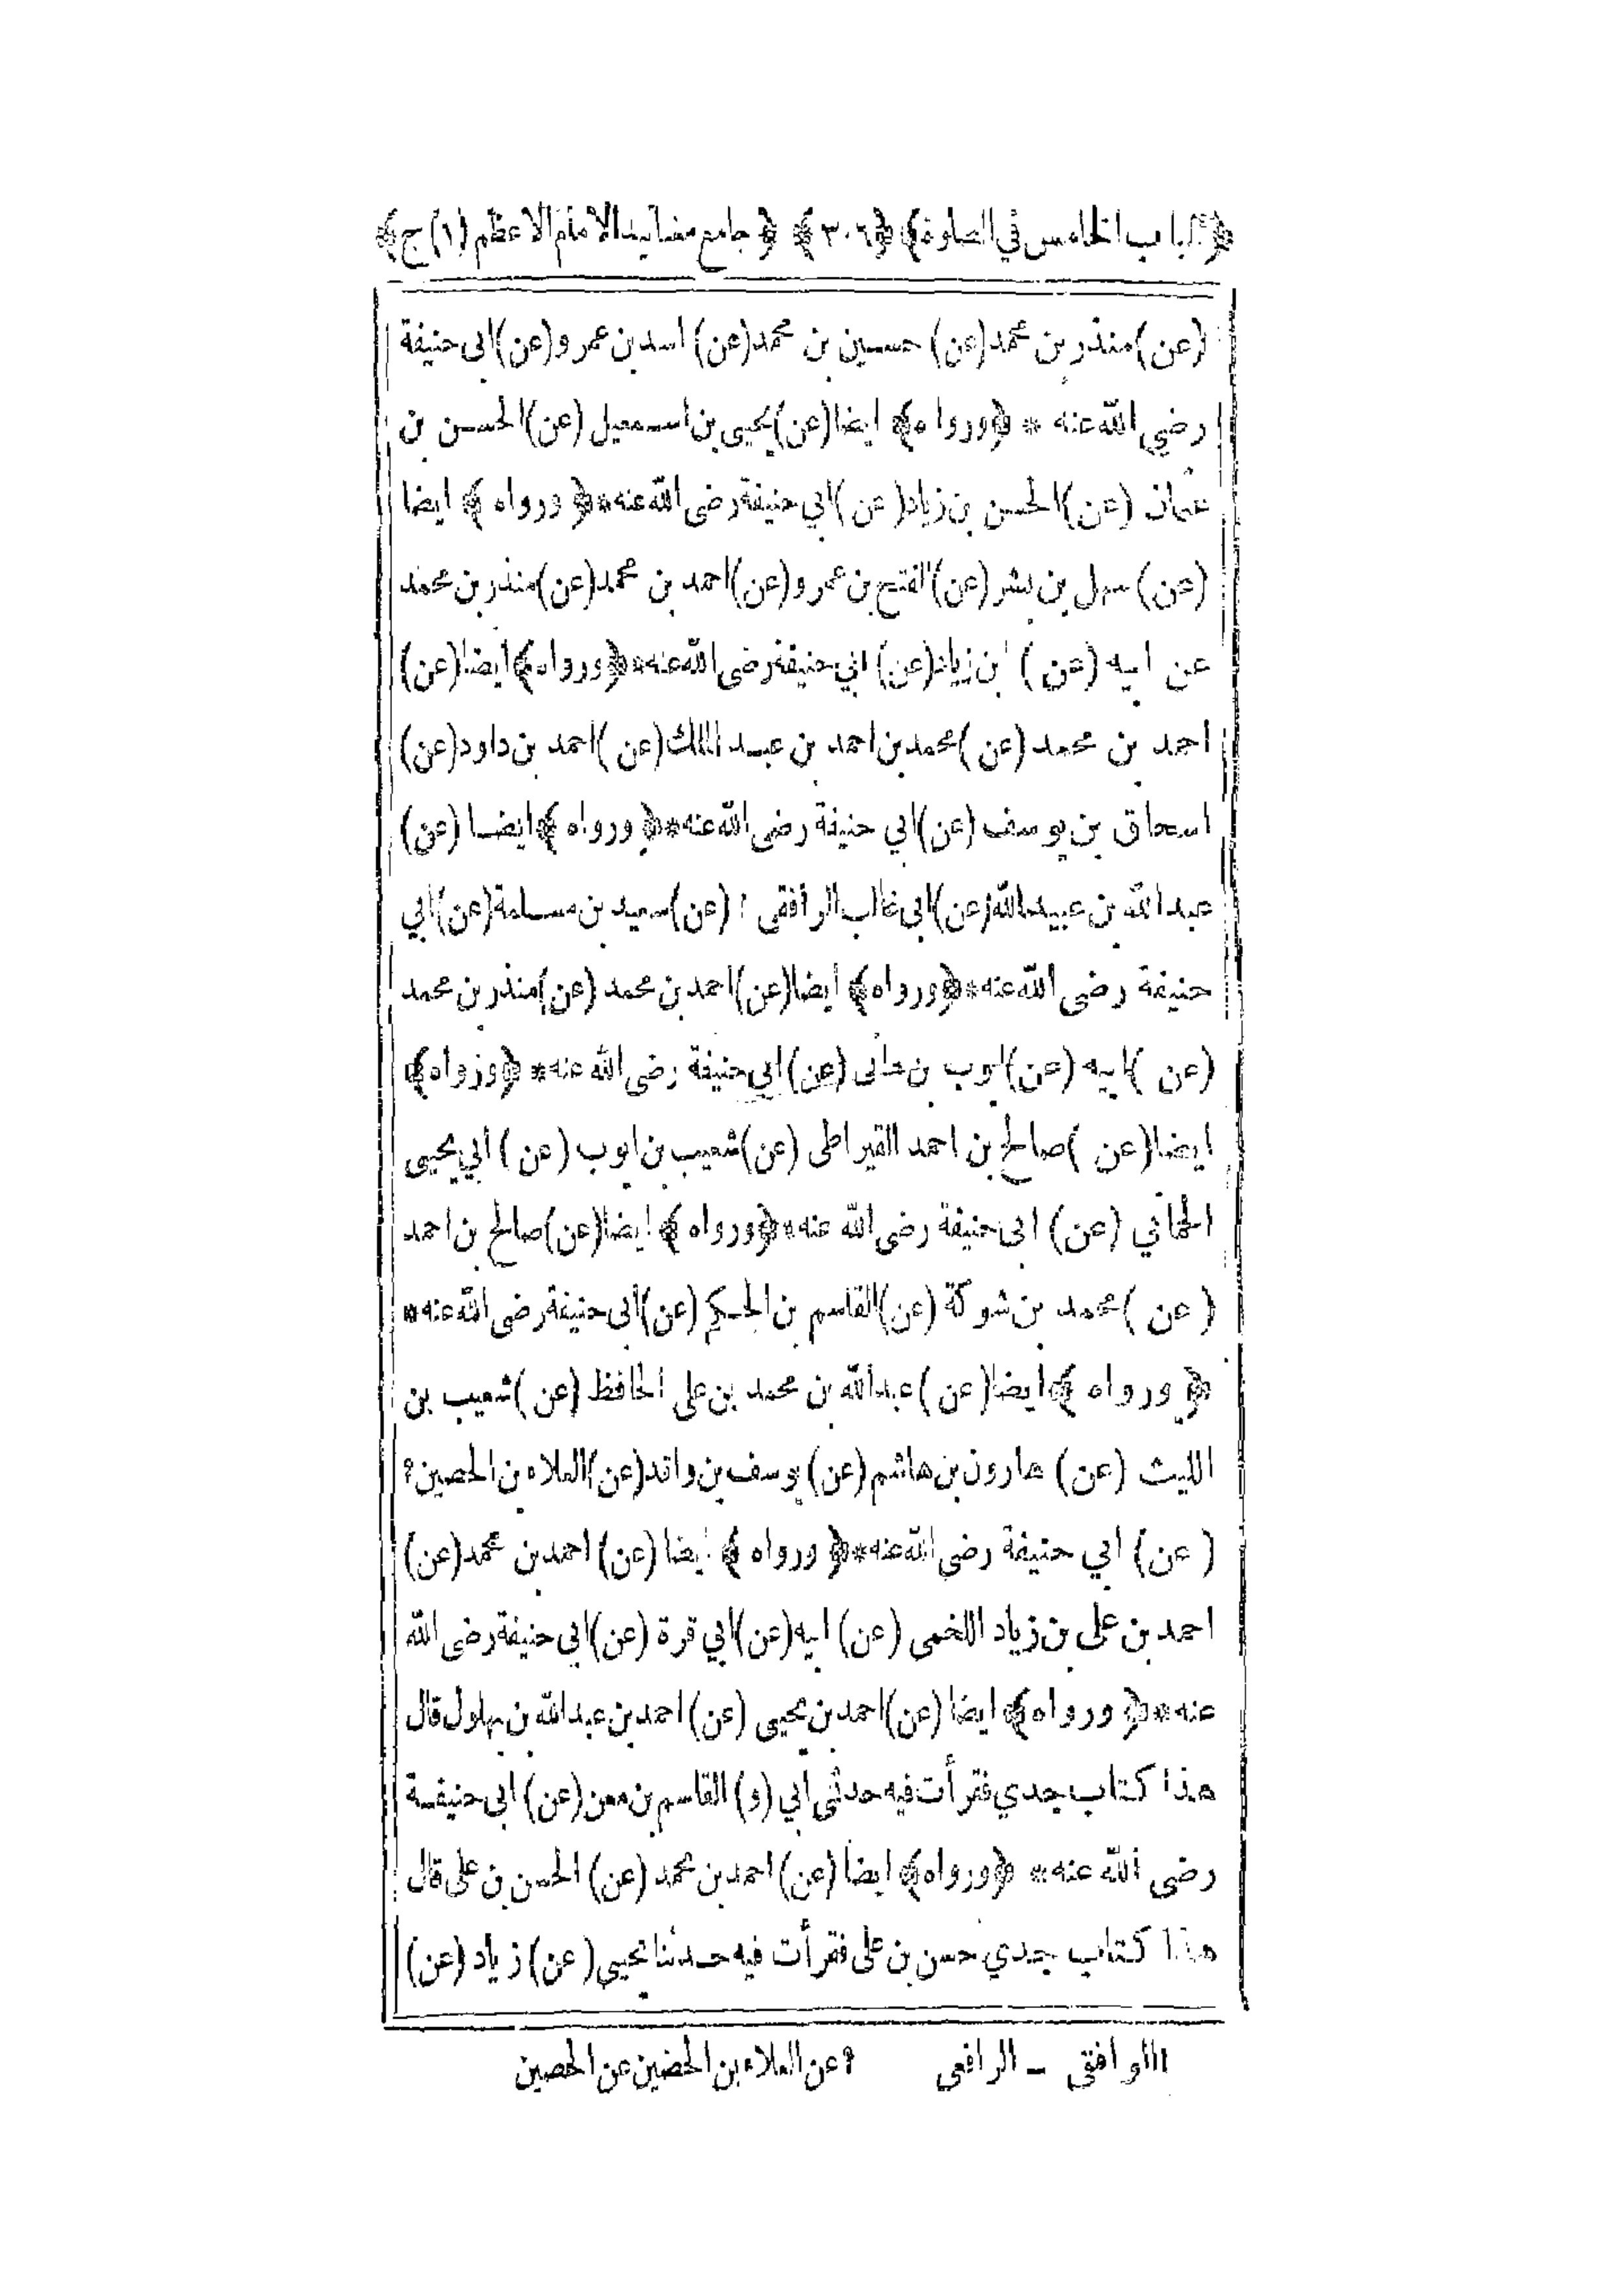 ﴿الباب الخامس في الصلوة﴾ ﴿٣٠٦﴾ ﴿جامع مسانيد الامام الاعظم (١) ج﴾
(عن) منذر بن محمد (عن) حسين بن محمد (عن) اسد بن عمرو (عن) ابى حنيفة
رضي الله عنه * ﴿ورواه﴾ ايضا (عن) يحيى بن اسمعيل (عن) الحسن بن
عثمان (عن) الحسن بن زياد (عن) ابي حنيفة رضى الله عنه * ﴿ورواه﴾ ايضا
(عن) سهل بن بشر (عن) الفتح بن عمرو (عن) احمد بن محمد (عن) منذر بن محمد
عن ابيه (عن) ابن زياد (عن) ابي حنيفة رضى الله عنه * ﴿ورواه﴾ ايضا (عن)
احمد بن محمد (عن) محمد بن احمد بن عبد الملك (عن) احمد بن داود (عن)
اسحاق بن يوسف (عن) ابي حنيفة رضى الله عنه * ﴿ورواه﴾ ايضا (عن)
عبد الله بن عبيد الله (عن) ابى غالب الرافقى ١ (عن) سعيد بن مسلمة (عن) ابي
حنيفة رضى الله عنه * ﴿ورواه﴾ ايضا (عن) احمد بن محمد (عن) منذر بن محمد
(عن) ابيه (عن) ايوب بن هانى (عن) ابي حنيفة رضى الله عنه * ﴿ورواه﴾
ايضا (عن) صالح بن احمد القيراطى (عن) شعيب بن ايوب (عن) ابي يحيى
الحمانى (عن) ابى حنيفة رضى الله عنه * ﴿ورواه﴾ ايضا (عن) صالح بن احمد
(عن) محمد بن شوكة (عن) القاسم بن الحكم (عن) ابى حنيفة رضى الله عنه *
﴿ورواه﴾ ايضا (عن) عبد الله بن محمد بن على الحافظ (عن) شعيب بن
الليث (عن) هارون بن هاشم (عن) يوسف بن واقد (عن) العلاء بن الحصين ٢
(عن) ابي حنيفة رضى الله عنه * ﴿ورواه﴾ ايضا (عن) احمد بن محمد (عن)
احمد بن على بن زياد اللخمى (عن) ابيه (عن) ابي قرة (عن) ابى حنيفة رضى الله
عنه * ﴿ورواه﴾ ايضا (عن) احمد بن يحيى (عن) احمد بن عبد الله بن بهلول قال
هذا كتاب جدي فقرأت فيه حدثنى أبي (و) القاسم بن معن (عن) ابى حنيفة
رضى الله عنه * ﴿ورواه﴾ ايضا (عن) احمد بن محمد (عن) الحسن بن على قال
هذا كتاب جدي حسن بن على فقرأت فيه حدثنا يحيى (عن) زياد (عن)
١ الوافقى - الرافعى ٢ عن العلاء بن الحضين عن الحصين